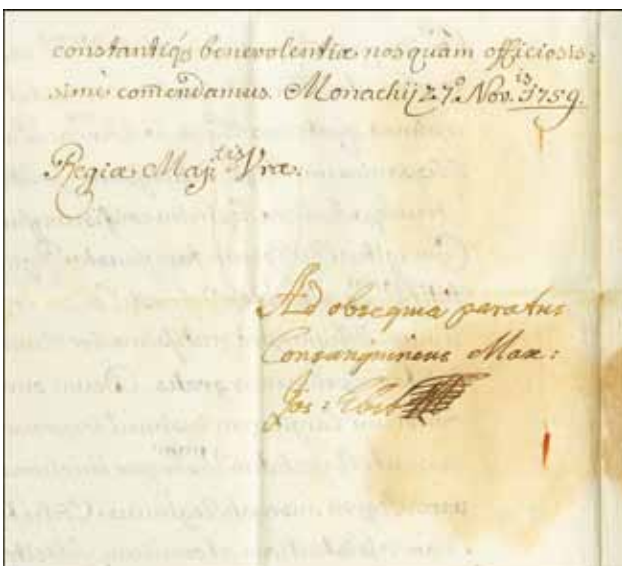 constantiq̃s benevolentiæ nos quàm officiosis:
simè com̃endamus. Monachij 27.º Nov.is 1759.
Regiæ Maj.tis Vræ:
Ad obsequia paratus
Consanguineus Max:
Jos: